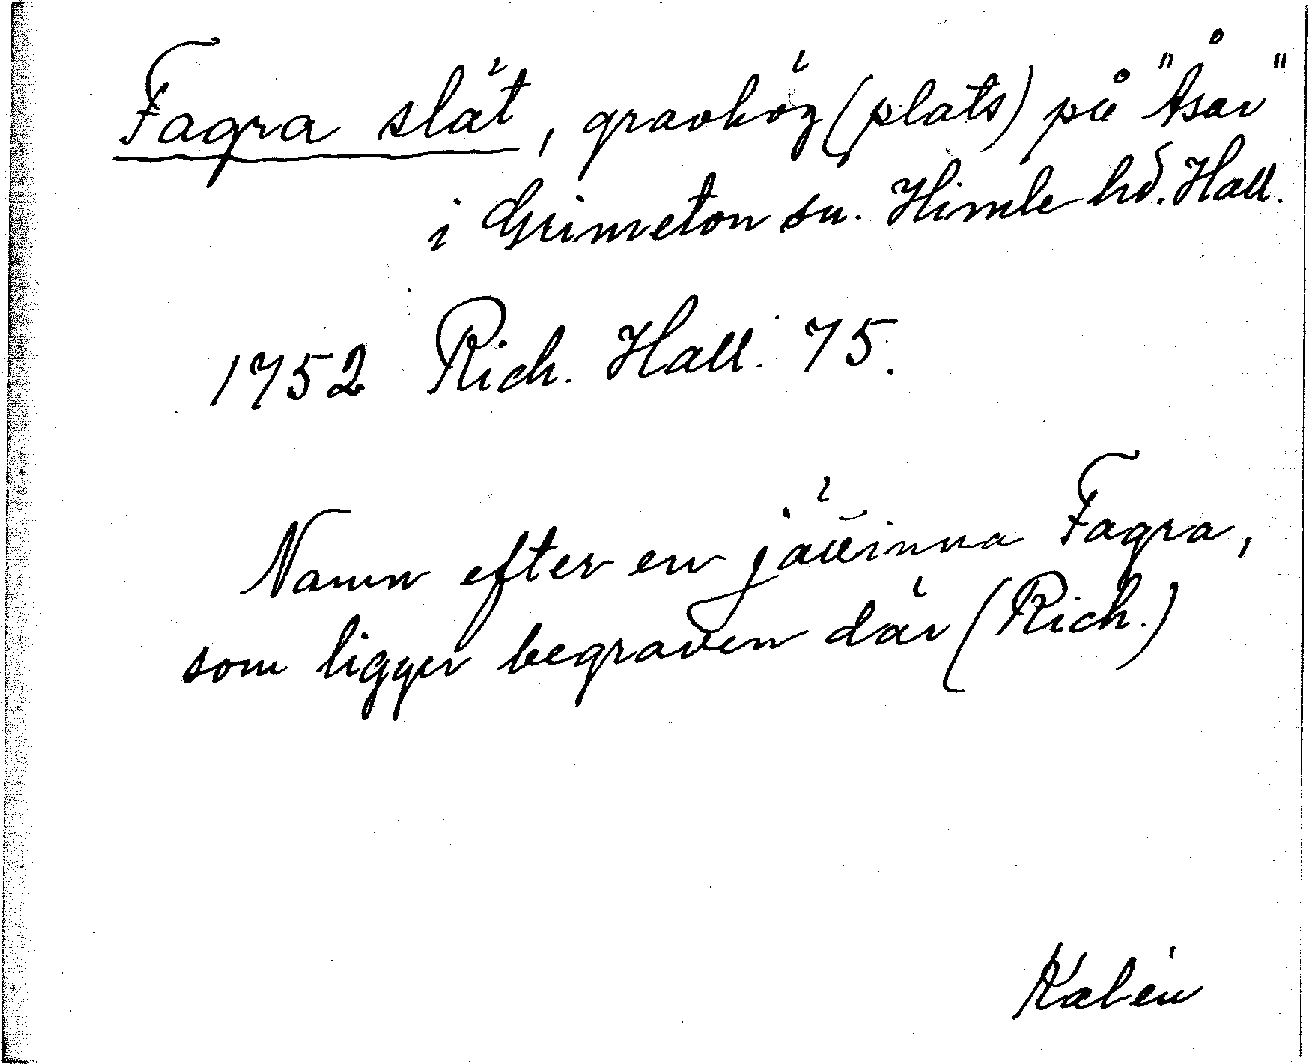 Fagra slät, gravhög (plats) på "Åsar"
i Grimeton sn. Himle hd. Hall.
1752 Rich. Hall. 75.
Namn efter en jättinna Fagra,
som ligger begraven där (Rich.)
Kalén